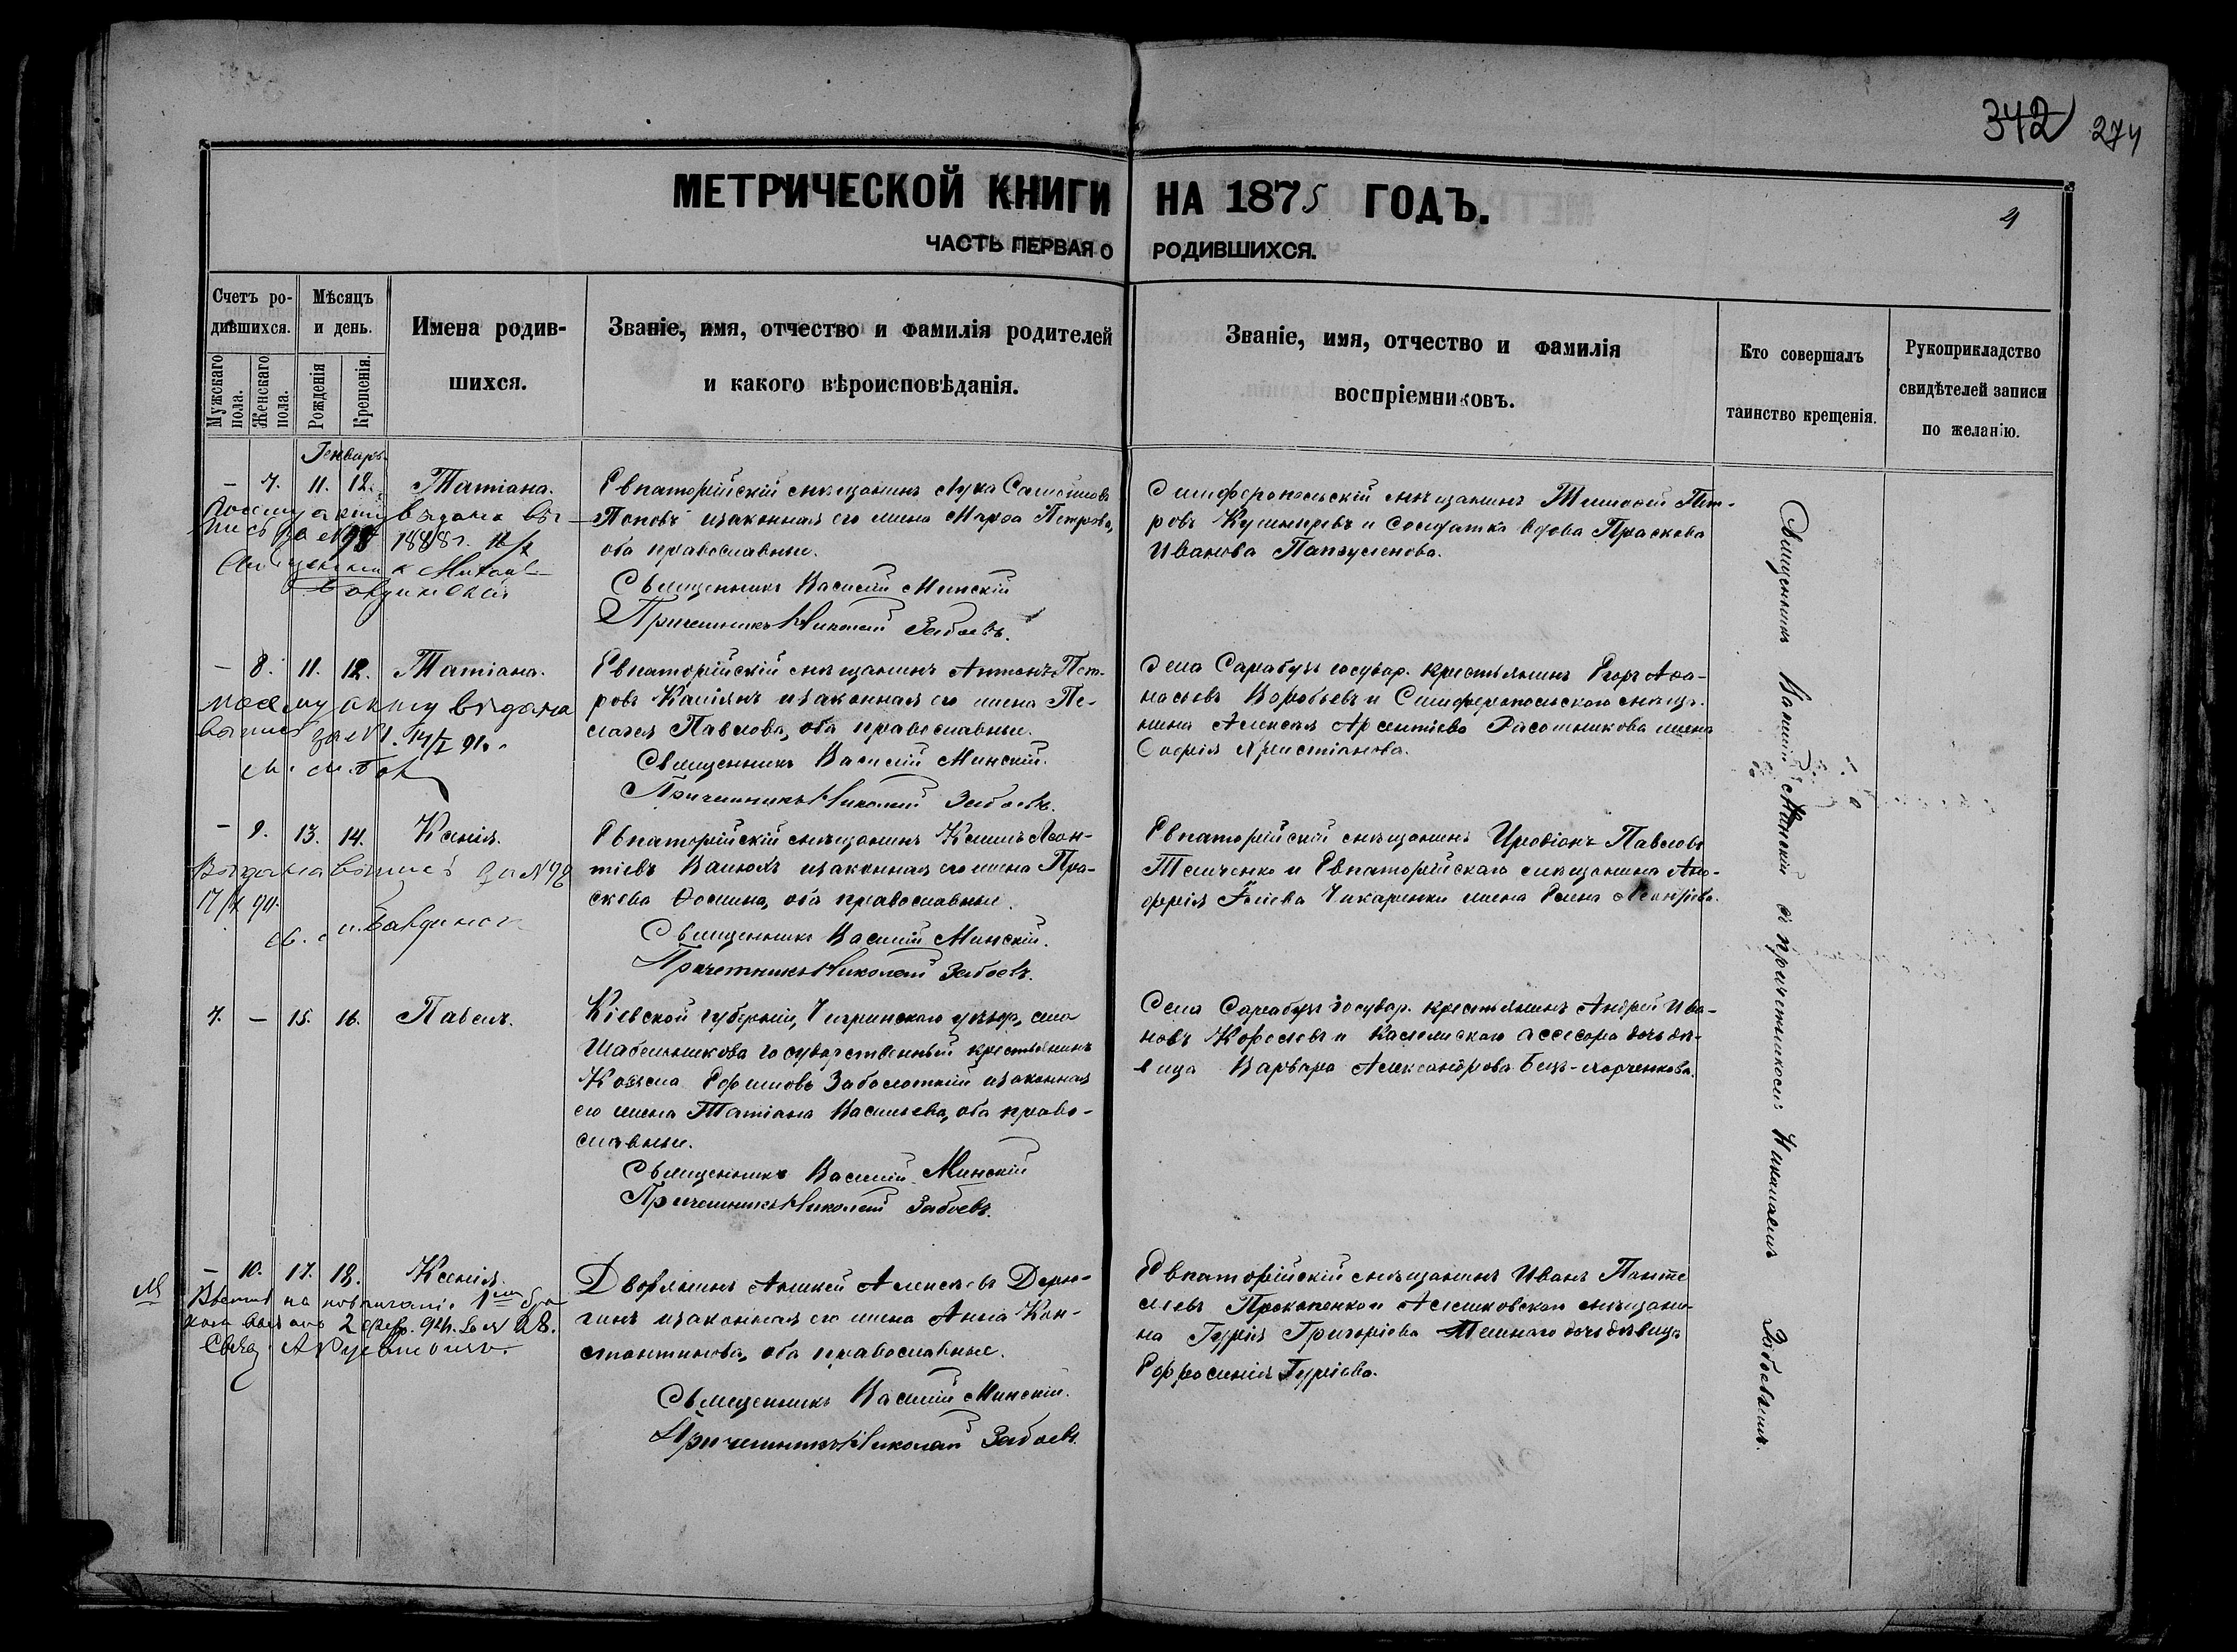 342 274
МЕТРИЧЕСКОЙ КНИГИ НА 1875 ГОДЪ.
4
ЧАСТЬ ПЕРВАЯ О РОДИВШИХСЯ.
Счетъ родившихся.
Мужскаго пола.
Женскаго пола.
Мѣсяцъ и день.
Рожденія
Крещенія.
Имена родившихся.
Званіе, имя, отчество и фамилія родителей
и какого вѣроисповѣданія.
Званіе, имя, отчество и фамилія
воспріемниковъ.
Кто совершалъ
таинство крещенія.
Рукоприкладство
свидѣтелей записи
по желанію.
Генварь
– 7. 11. 12. Татіана.
По сему акту выдана вы-
пись за № 98 1888 г.
Священникъ
Евпаторійскій мѣщанинъ Лука Самойловъ
Поповъ и законная его жена Марѳа Петрова,
оба православные.
Священникъ Василій Минскій
Причетникъ Николай Забоевъ.
Симферопольскій мѣщанинъ Тимоѳей Пет-
ровъ Кушниревъ и Солдатка вдова Праскева
Иванова
– 8. 11. 12. Татіана.
по сему акту выдана
выпись за № 1. 14/I 91 г.
Евпаторійскій мѣщанинъ Антонъ Пет-
ровъ и законная его жена Пе-
лагея Павлова, оба православные.
Священникъ Василій Минскій.
Причетникъ Николай Забоевъ.
Села Сарабузъ государ. крестьянинъ Егоръ Аѳа-
насьевъ Воробьевъ и Симферопольскаго мѣща-
нина Алексѣя Арсентіева жена
Софія Христіанова.
– 9. 13. 14. Ксенія.
Выдана выпись за №
17/ 94
Евпаторійскій мѣщанинъ Леон-
тіевъ и законная его жена Пра-
скева Ѳомина, оба православные.
Священникъ Василій Минскій.
Причетникъ Николай Забоевъ.
Евпаторійскій мѣщанинъ Иродіонъ Павловъ
Ткаченко и Евпаторійскаго мѣщанина Ано-
фрія Чикаренки жена Елена
7. – 15. 16. Павелъ.
Кіевской губерніи, Чигринскаго уѣзд., села
Шабельникова государственный крестьянинъ
Козьма Ефимовъ Заболоткій и законная
его жена Татіана Васильева, оба право-
славные.
Священникъ Василій Минскій
Причетникъ Николай Забоевъ.
Села Сарабузъ государ. крестьянинъ Андрей Ива-
новъ Королевъ и Коллежскаго ассесора дочь дѣ-
вица Варвара Александрова
№ – 10. 17. 18. Ксенія.
2 февр.
Дворянинъ Алексѣевъ Дерю-
гинъ и законная его жена Анна Кон-
стантинова, оба православные.
Священникъ Василій Минскій.
Причетникъ Николай Забоевъ.
Евпаторійскій мѣщанинъ Иванъ Панте
леевъ Прокопенко и Алешковскаго мѣщани-
на Гурія Григоріева дочь дѣвица
Ефросинія Гуріева.
Священникъ Василій Минскій съ причетникомъ Николаемъ Забоевымъ.